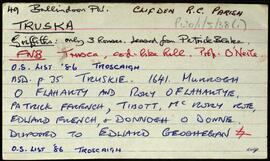 49 Ballindoon Ph. CLIFDEN R.C. PARISH
TRUSKA P120/1/5/38(1)
Griffiths: only 3 Houses. search for Patrick Blake.
ANB IMNOCA, cnoc-like Hill. Prof. O'Neill
O.S. LIST '86 TROSCAIGH
BSD. p. 35 TRUSKIE. 1641. MURROGH
O FLAHARTY AND RORY OFLAHARTYE,
PATRICK FFRENCH, TIBOTT, MC RORY OGE,
EDWARD FRENCH, & DONNOGH O DONNE.
DISPOSED TO EDWARD GEOGHEGAN
O.S. LIST '86 TROSCAIGH